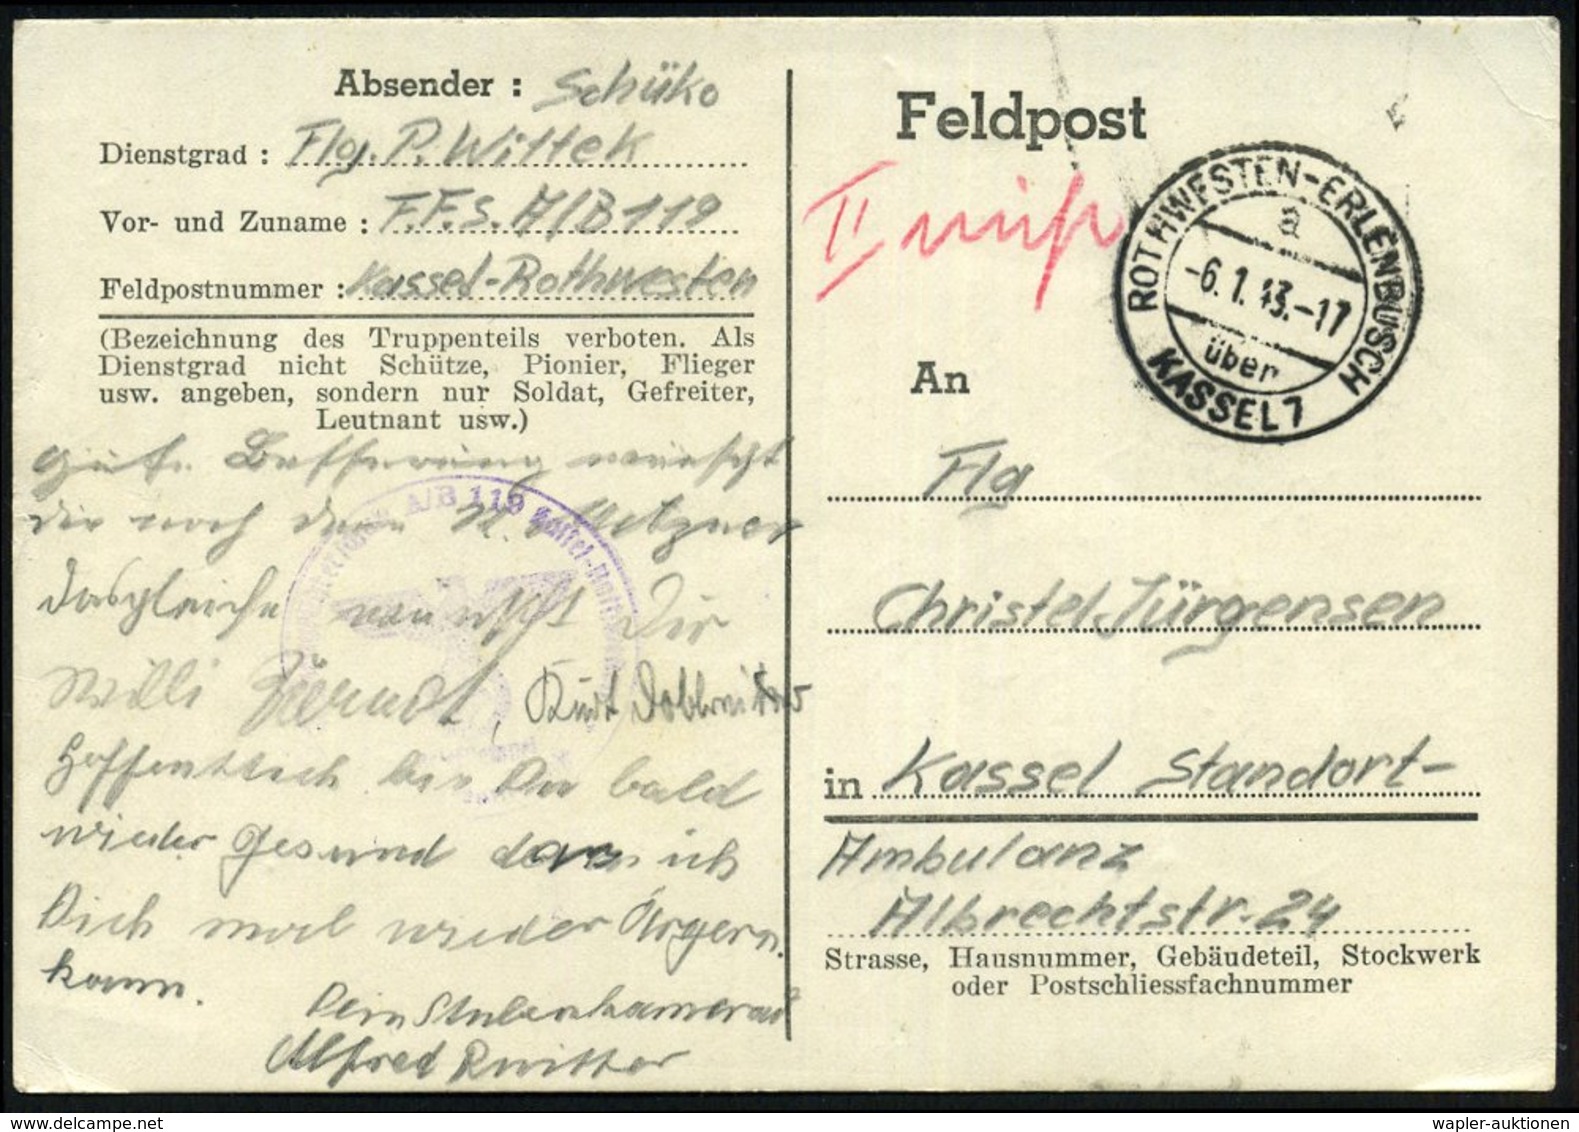 Absender : Schüko
Dienstgrad : Flg. P. Wittek
Vor- und Zuname : F.F.S. A/B 119
Feldpostnummer : Kassel-Rothwesten
(Bezeichnung des Truppenteils verboten. Als
Dienstgrad nicht Schütze, Pionier, Flieger
usw. angeben, sondern nur Soldat, Gefreiter,
Leutnant usw.)
Gute Besserung wünscht
dir noch dein Metzner
Dasgleiche wünscht Dir
Willi Kurt
Hoffentlich bis Du bald
wieder Gesund dass ich
Dich mal wieder Ärgern
kann.
Dein Stubenkamerad
Alfred
A/B 119
Feldpost
II
ROTHWESTEN-ERLENBUSCH
a
-6.1.43.-17
über
KASSEL 7
An
Flg
Christel Jürgensen
in Kassel Standort-
Ambulanz
Albrechtstr. 24
Strasse, Hausnummer, Gebäudeteil, Stockwerk
oder Postschliessfachnummer
wapler-auktionen